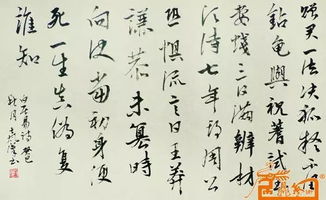 贈君一法決狐疑不用
鉆龜與祝蓍試玉
要燒三日滿辨材
須待七年期周公
恐懼流言日王莽
謙恭未篡時
向使當初身便
死一生真偽復
誰知
白居易詩癸巳
秋月